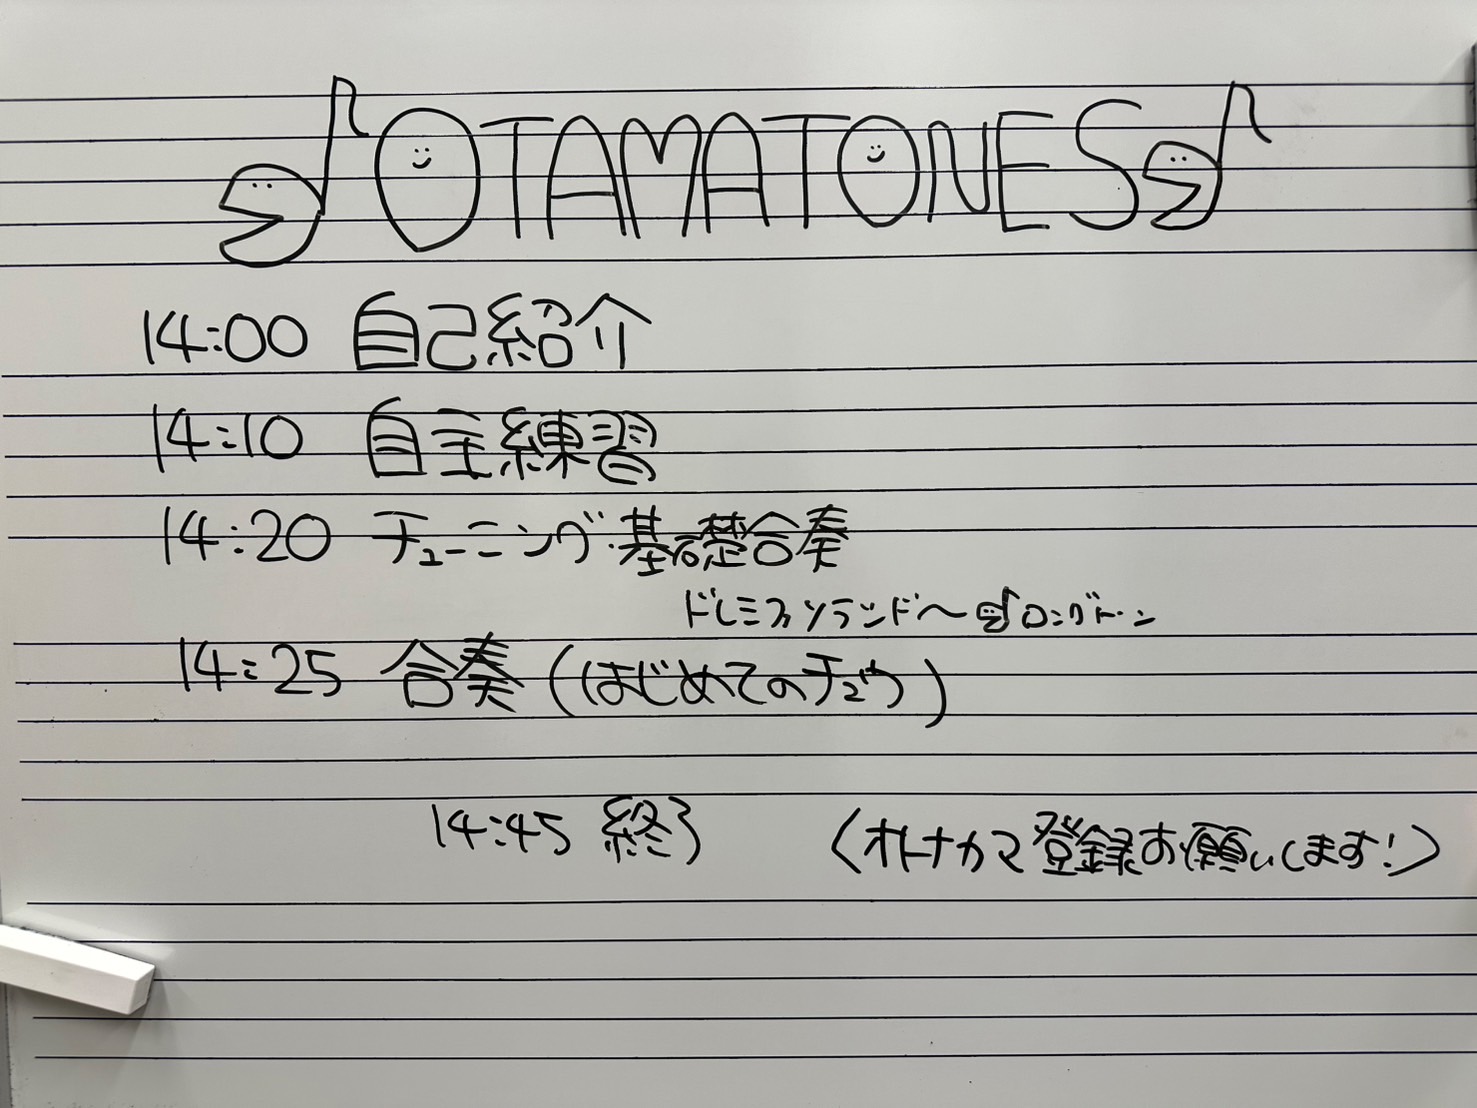 OTAMATONES
14:00 自己紹介
14:10 自主練習
14:20 チューニング・基礎合奏
ドレミファソラシド〜ロングトーン
14:25 合奏(はじめてのチュウ)
14:45 終了 〈オトナカマ登録お願いします!〉